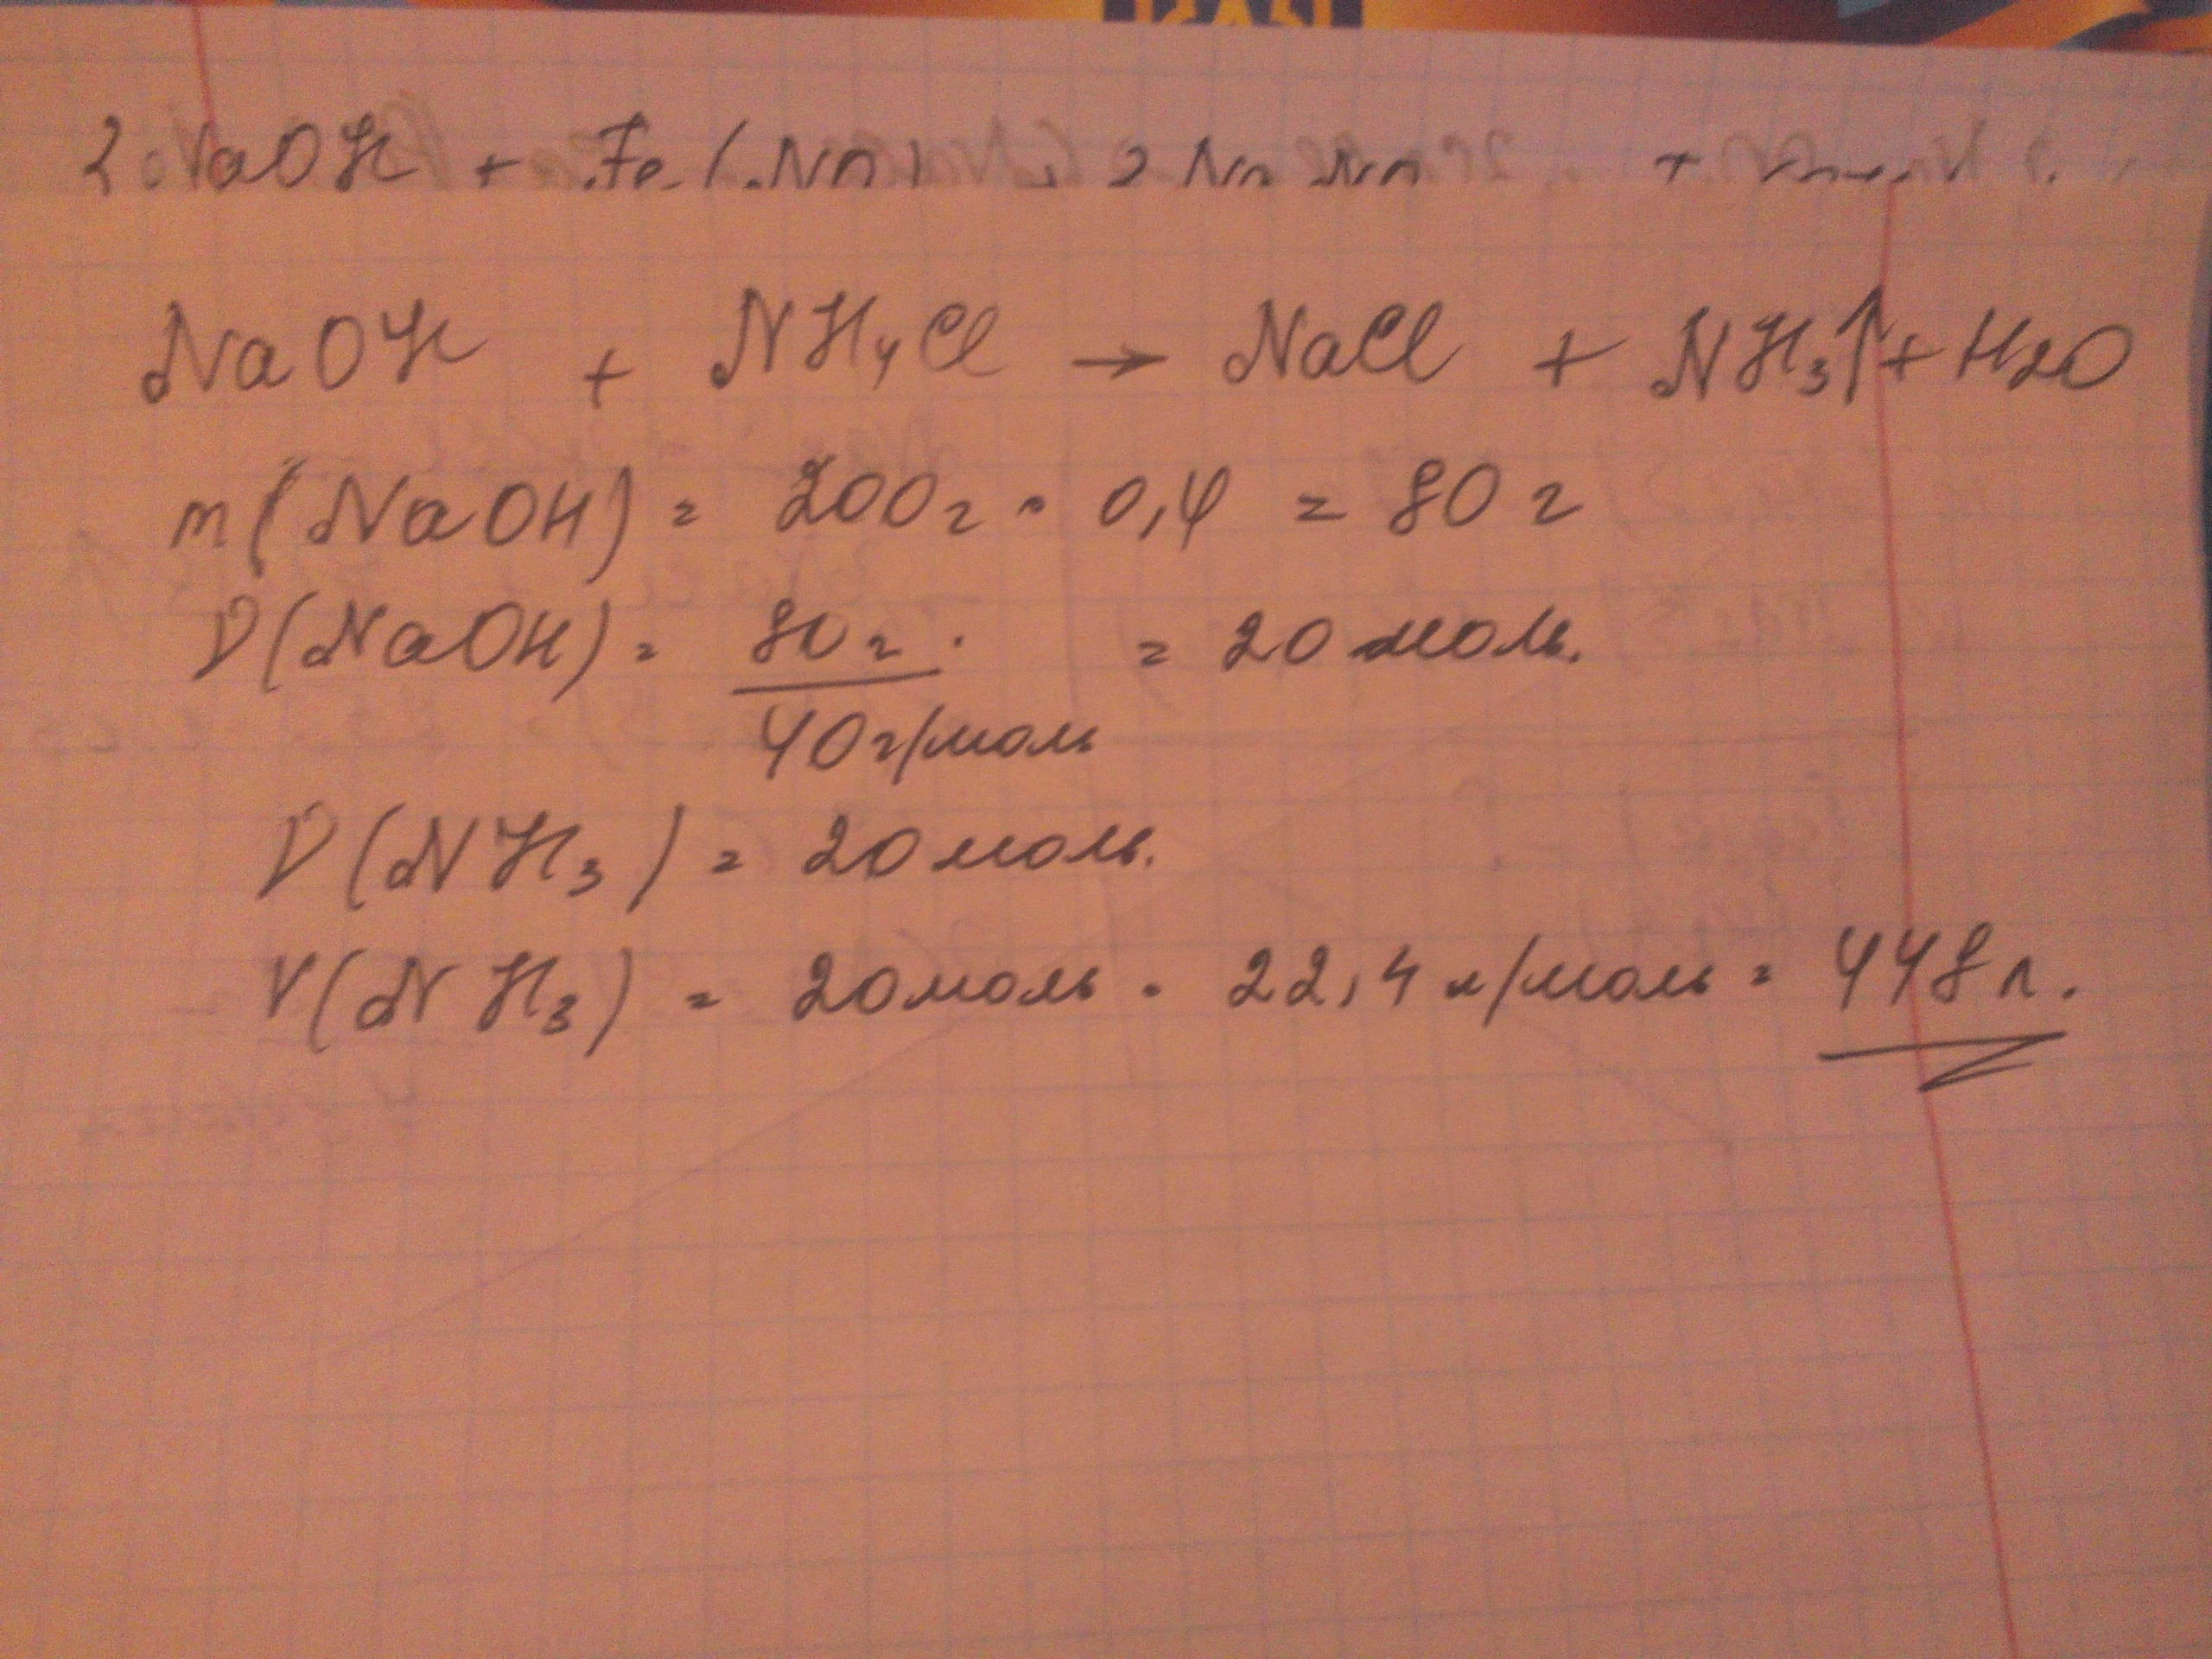 2 NaOH + Fe (
NaOH + NH4Cl → NaCl + NH3↑ + H2O
m(NaOH) = 200г · 0,4 = 80 г
ν(NaOH) = 80 г / 40 г/моль = 20 моль.
ν(NH3) = 20 моль.
V(NH3) = 20 моль · 22,4 л/моль = 448 л.